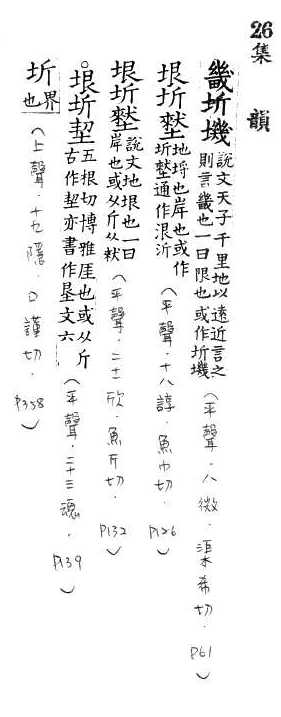 26集　韻
畿圻墘說文天子千里地以遠近言之則言畿也一曰限也或作圻墘（平聲．八微．渠希切．P61）
垠圻㙬地埒也岸也或作圻㙬通作泿沂（平聲．十八諄．魚巾切．P126）
垠圻㙬說文地垠也一曰岸也或从斤从㹞（平聲．二十一欣．魚斤切．P132）
◦垠圻㓞五根切博雅厓也或从斤古作㓞亦書作垦文六（平聲．二十三魂．P139）
圻界也（上聲．十九隱．口謹切．P358）